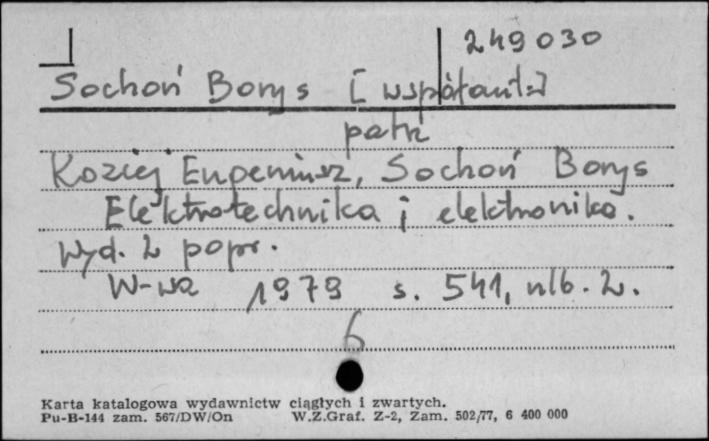 249030
Sochoń Borys [współaut.]
patrz
Koziej Eugeniusz, Sochoń Borys
Elektrotechnika i elektronika.
Wyd. 2 popr.
W-wa 1979 s. 541, nlb. 2.
6
Karta katalogowa wydawnictw ciągłych i zwartych.
Pu-B-144 zam. 567/DW/On W.Z.Graf. Z-2, Zam. 502/77, 6 400 000